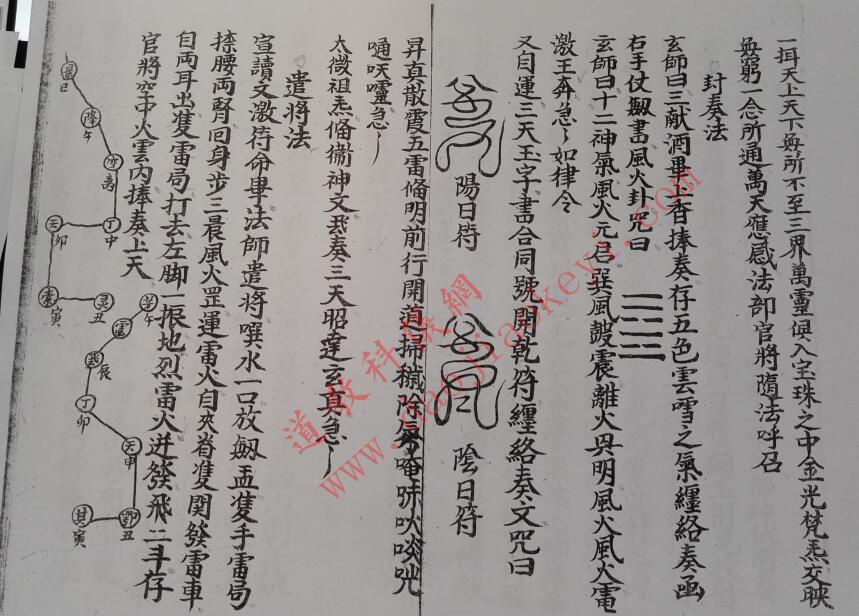 一揖天上天下無所不至三界萬靈俱入宝珠之中金光梵炁交映
無窮一念所通萬天應感法部官將隨法呼召
封奏法
玄師曰三献酒畢上香捧奏存五色雲雷之氣纏絡奏函
右手仗劔書風火卦咒曰
玄師曰十二神氣風火元君巽風皷震離火具明風火風火電
激王奔急〻如律令
又自運三天玉字書合同號開乾符纏絡奏文咒曰
陽日符
陰日符
昇真散霞五雷脩明前行開道掃穢除氛唵吽吹啖咣
嗵呅靈急〻
太微祖炁脩衛神文飛奏三天昭達玄真急〻
遣將法
宣讀文激符命畢法師遣將噀水一口放劔盂雙手雷局
捺腰兩腎回身步三晨風火罡運雷火自夾脊雙関發雷車
自両耳出雙雷局打去左脚一振地烈雷火迸發飛二斗存
官將空中火雲內捧奏上天
巳
午
丁
中
卯
寅
丑
午
辰
丁
卯
天
丑
其
寅
道教科儀網
www.daojiaokeyi.com